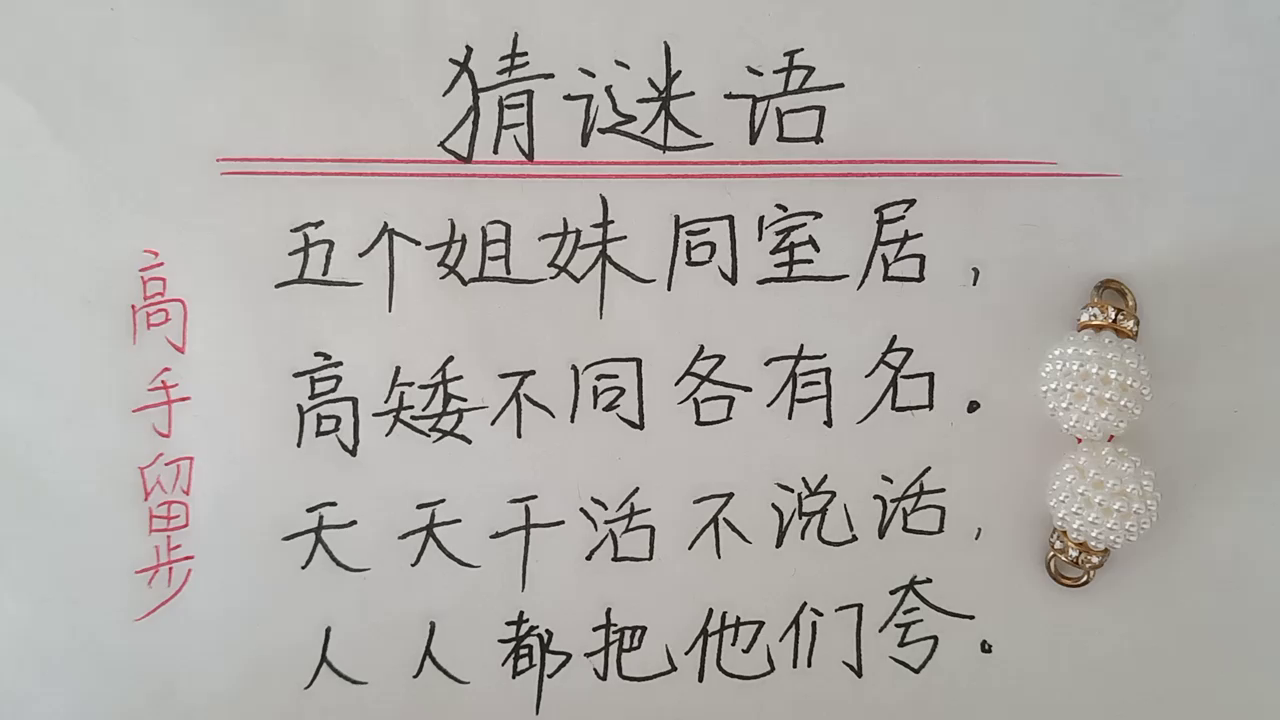 猜谜语
五个姐妹同室居,
高矮不同各有名.
天天干活不说话,
人人都把他们夸.
高手留步